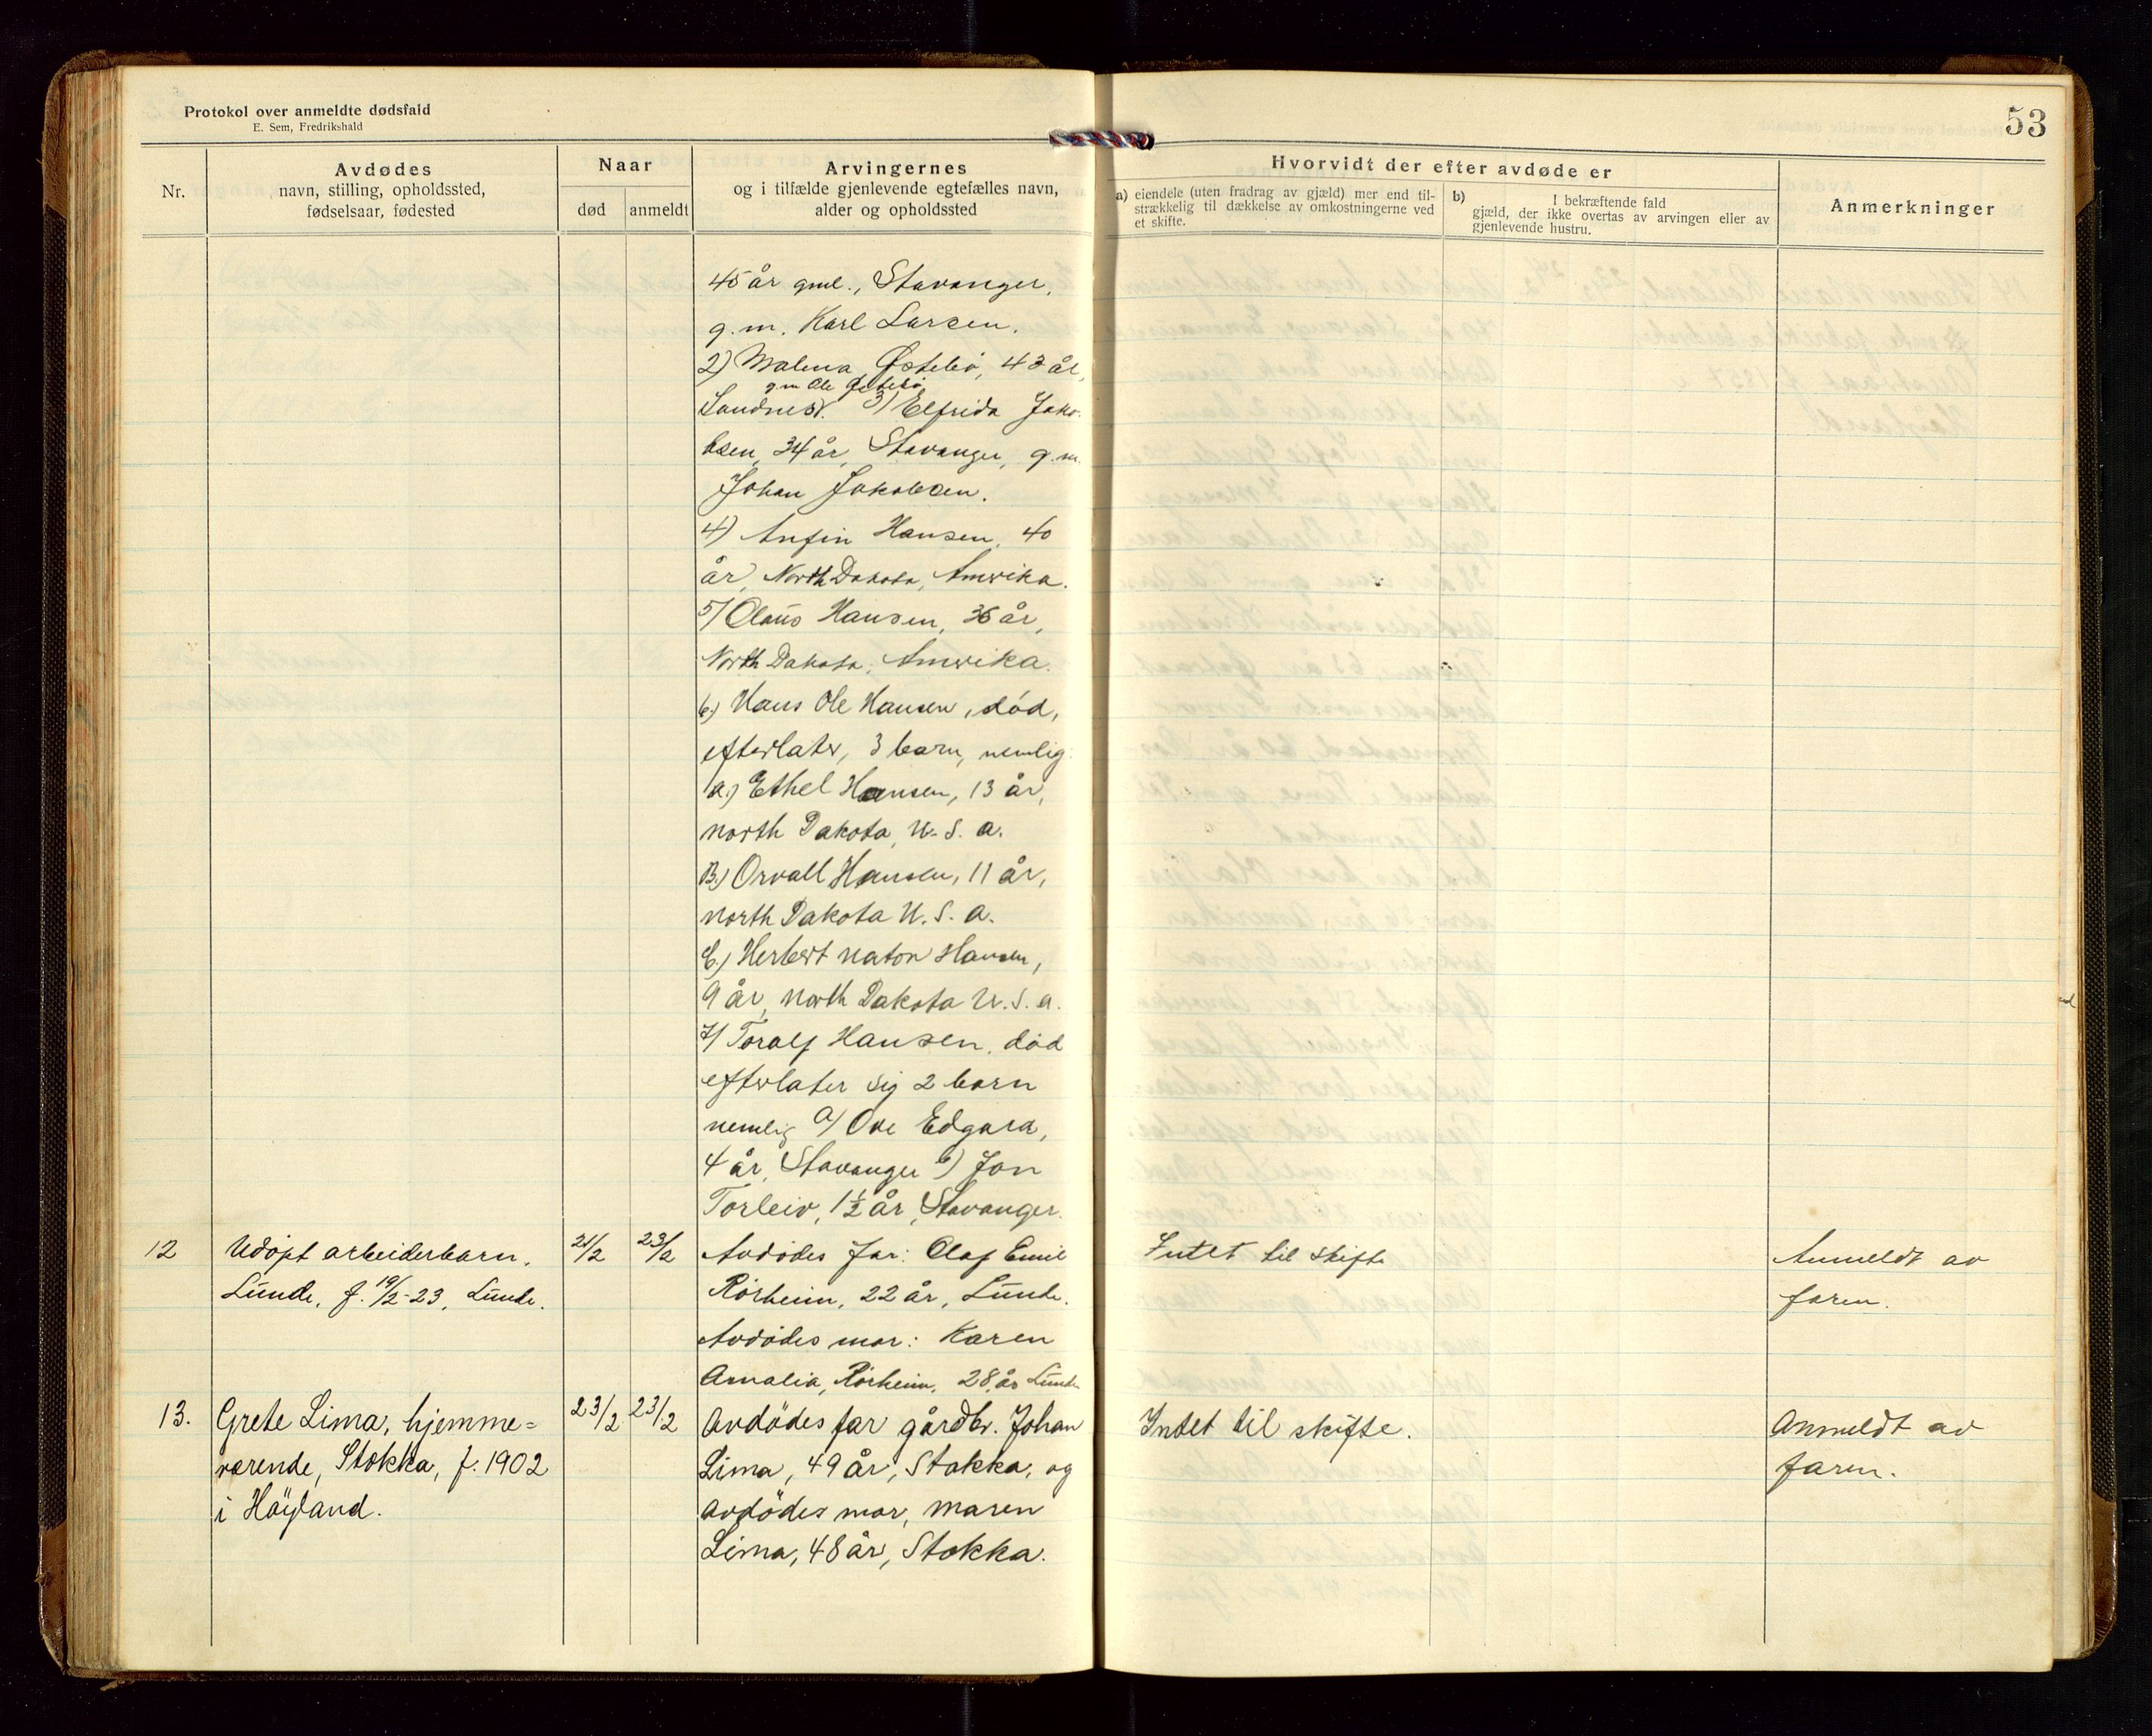 Protokol over anmeldte dødsfald
E. Sem, Fredrikshald
53
Nr.
Avdødes
navn, stilling, opholdssted,
fødselsaar, fødested
Naar
død
anmeldt
Arvingernes
og i tilfælde gjenlevende egtefælles navn,
alder og opholdssted
Hvorvidt der efter avdøde er
a) eiendele (uten fradrag av gjæld) mer end til-
strækkelig til dækkelse av omkostningerne ved
et skifte.
b) I bekræftende fald
gjæld, der ikke overtas av arvingen eller av
gjenlevende hustru.
Anmerkninger
45 år gml., Stavanger,
g.m. Karl Larsen.
2) Malena Østebö, 43 år,
g.m Ole Östebö
Sandnes. 3) Elfrida Jako-
bsen, 34 år, Stavanger, g.m.
Johan Jakobsen.
4) Anfin Hansen, 40
år, North Dakota, Amerika.
5) Olaus Hansen, 36 år,
North Dakota, Amerika.
6) Hans Ole Hansen, död,
efterlater, 3 barn, nemlig
a.) Ethel Hansen, 13 år,
North Dakota, U.S.a.
B.) Orvall Hansen, 11 år,
North Dakota U.S.a.
C.) Herbert Naton Hansen,
9 år, North Dakota U.S.a.
7) Toralf Hansen, död
efterlater sig 2 barn
nemlig a) Ove Edgara,
4 år, Stavanger b) Jon
Torleiv, 1½ år, Stavanger.
12 Udöpt arbeiderbarn, 21/2 23/2 Avdödes far: Olaf Emil Intet til skifte Anmeldt av
Lunde, f. 19/2-23, Lunde. Rörheim, 22 år, Lunde. faren.
Avdödes mor: Karen
Amalia, Rörheim, 28 år Lunde
13. Grete Lima, hjemme= 23/2 23/2 Avdödes far gårdbr. Johan Intet til skifte. Anmeldt av
værende, Stokka, f. 1902 Lima, 49 år, Stokka, og faren.
i Höyland. avdödes mor, Maren
Lima, 48 år, Stokka.